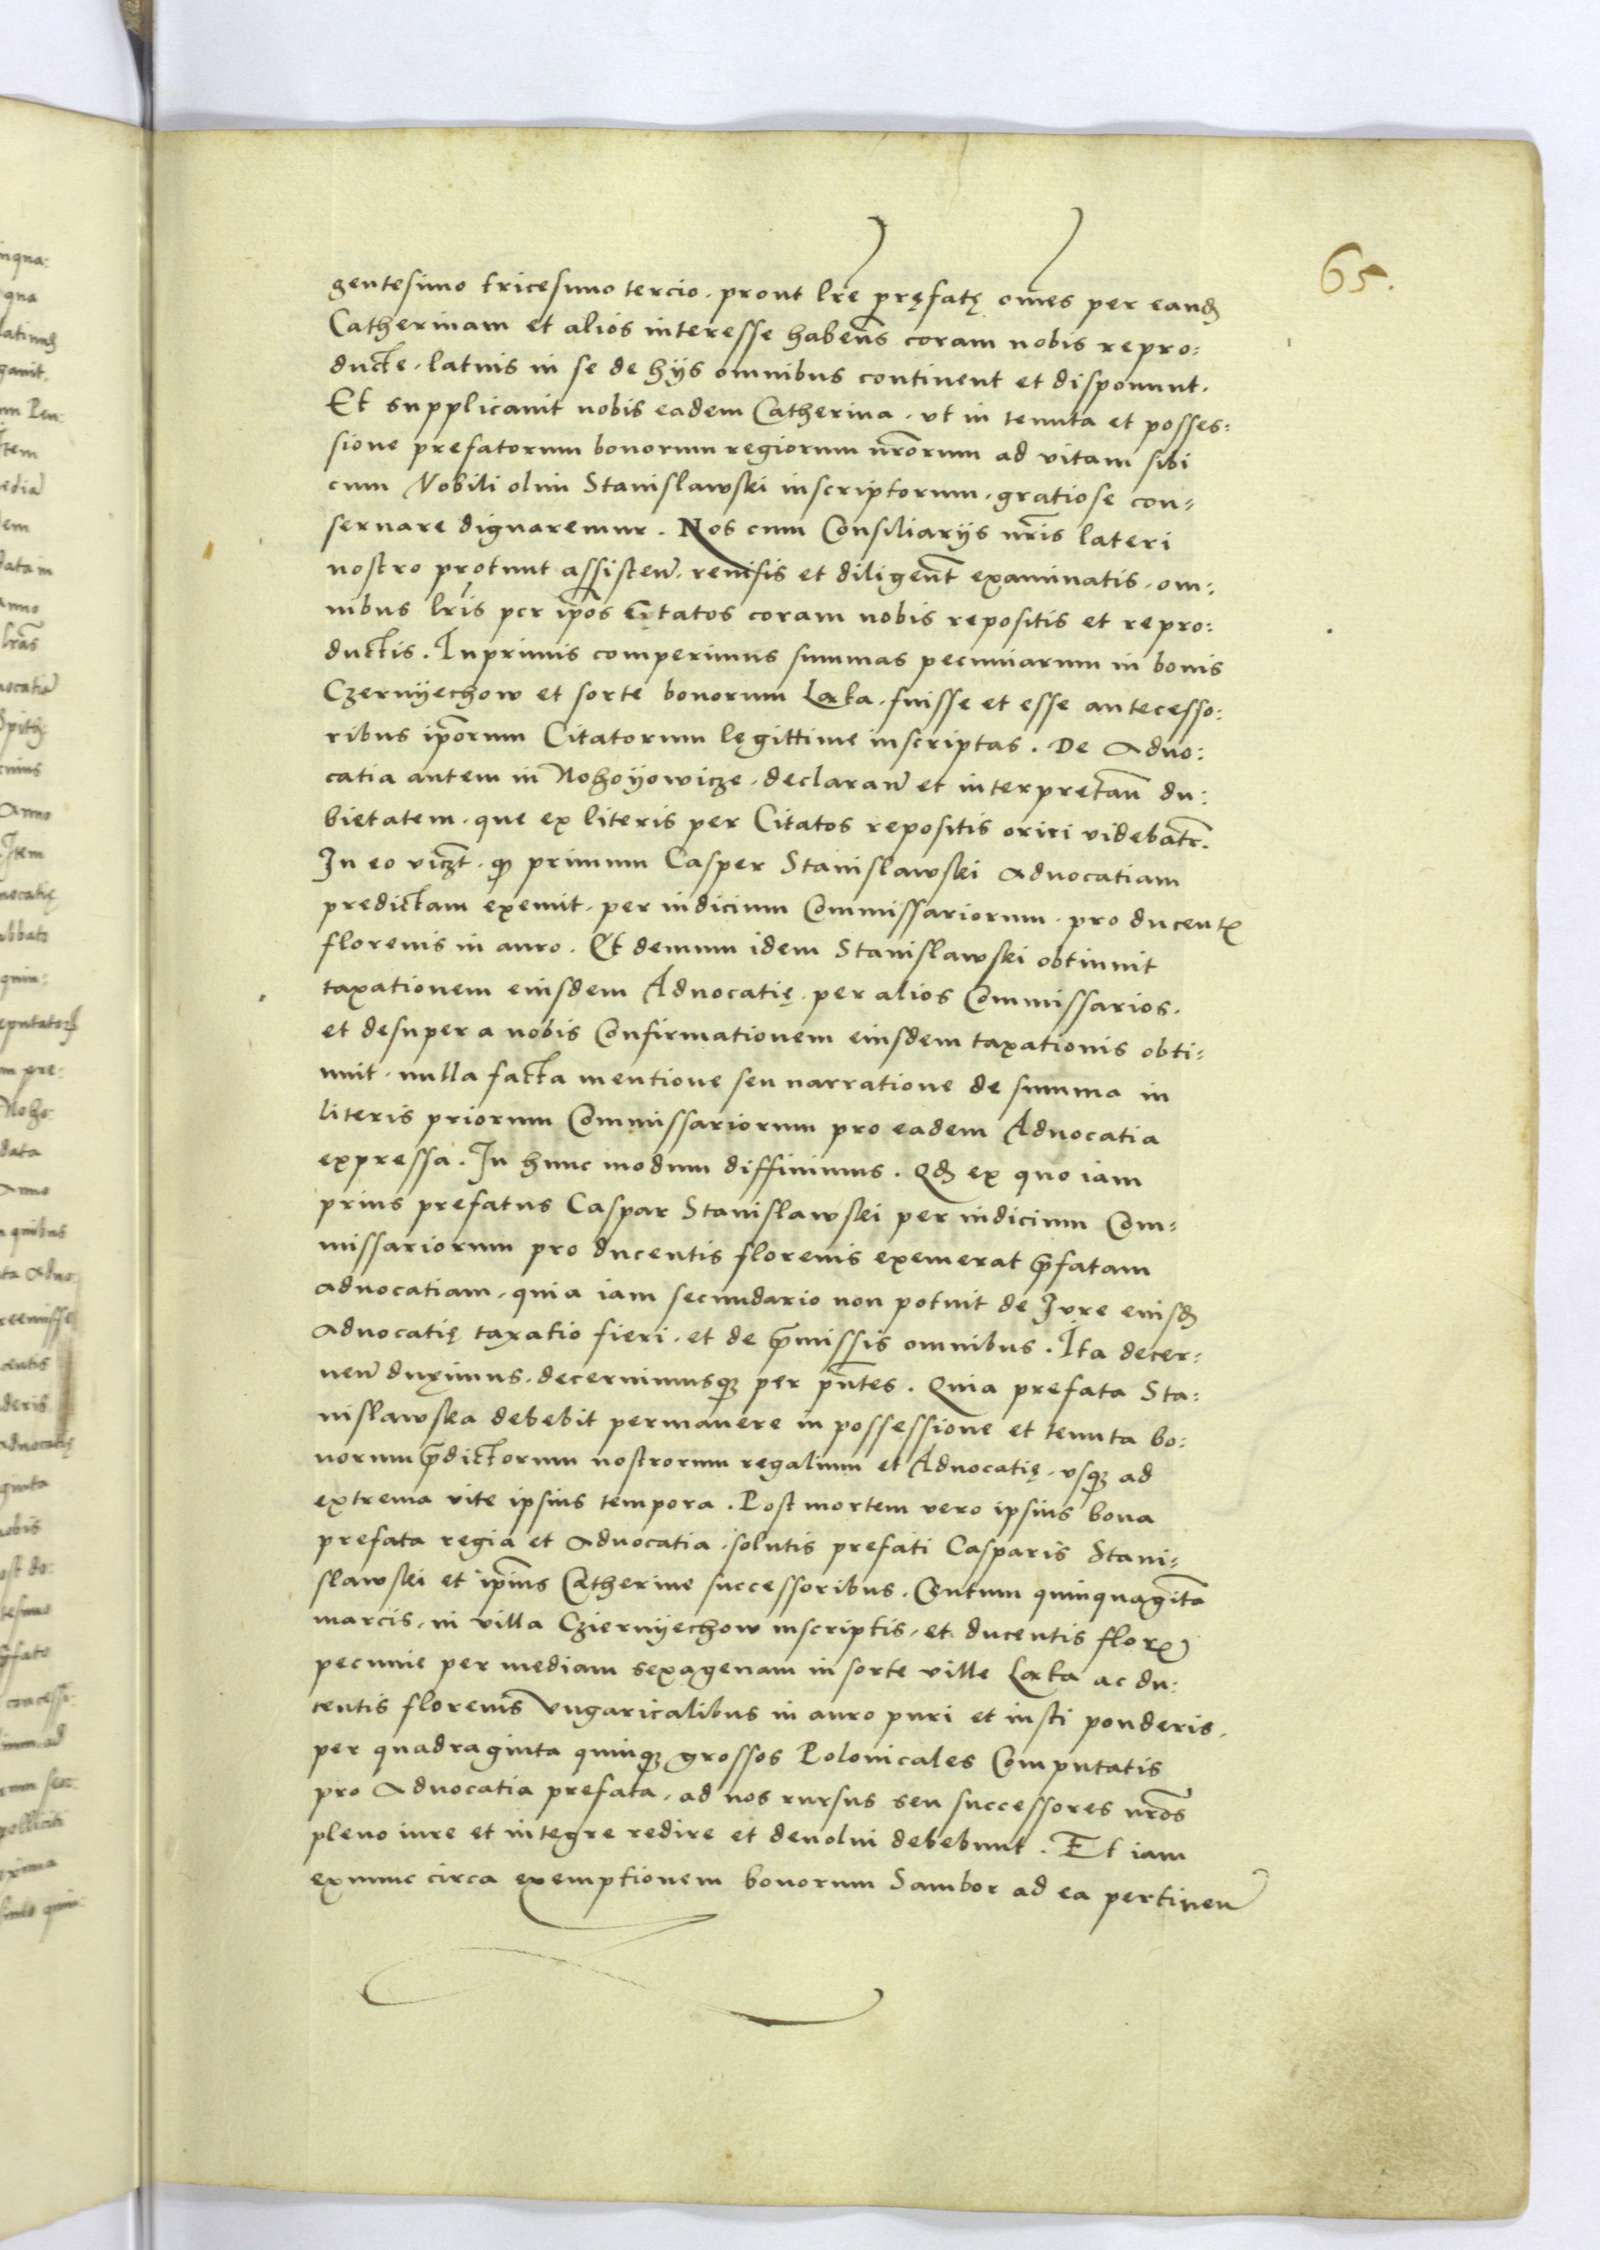 65.
gentesimo tricesimo tercio. prout lrē pręfatę om̄es per eand
Catherinam et alios interesse haben̄s coram nobis repro:
ducte. latius in se de hijs omnibus continent et disponunt.
Et supplicauit nobis eadem Catherina. vt in tenuta et posses:
sione prefatorum bonorum regiorum nr̄orum ad vitam sibi
cum Nobili olim Stanislawski inscriptorum. gratiose con:
seruare dignaremur. Nos cum Consiliarijs nr̄is lateri
nostro protunt assisten̄. reuisis et diligent̄ examinatis. om:
nibus lr̄is per ip̄os Citatos coram nobis repositis et repro:
ductis. Inprimis comperimus summas pecuniarum in bonis
Czernyechow et sorte bonorum Ląka. fuisse et esse antecesso:
ribus ip̄orum Citatorum lęgittime inscriptas. De Aduo:
catia autem in Nohoyowicze. declaran̄ et interpretan̄ du:
bietatem. que ex literis per Citatos repositis oriri videbatr̄.
In eo viczt̄. qp primum Casper Stanislawski Aduocatiam
predictam exemit. per iudicium Commissariorum. pro ducent
florenis in auro. Et demum idem Stanislawski obtinuit
taxationem eiusdem Aduocatię. per alios Commissarios.
et desuper a nobis Confirmationem eiusdem taxationis obti:
nuit. nulla facta mentione seu narratione de summa in
literis priorum Commissariorum pro eadem Aduocatia
expressa. In hunc modum diffinimus. Qd ex quo iam
prius prefatus Caspar Stanislawski per iudicium Com:
missariorum pro ducentis florenis exemerat p̄fatam
aduocatiam. quia iam secundario non potuit de Iure eiusd
Aduocatię taxatio fieri. et de p̄missis omnibus. Ita decer:
nen̄ duximus. decernimusq per pn̄tes. Quia prefata Sta:
nislawska debebit permanere in possessione et tenuta bo:
norum p̄dictorum nostrorum regalium et Aduocatię. vsq ad
extrema vite ipsius tempora. Post mortem vero ipsius bona
prefata regia et Aduocatia. solutis prefati Casparis Stani:
slawski et ip̄ius Catherine successoribus. Centum quinquagīta
marcis. in villa Cziernyechow inscriptis. et ducentis flor
pecunie per mediam sexagenam in sorte ville Ląka ac du:
centis florenis Vngaricalibus in auro puri et iusti ponderis.
per quadraginta quinq grossos Polonicales Computatis
pro Aduocatia prefata. ad nos rursus seu successores nr̄os
pleno iure et integre redire et deuolui debebunt. Et iam
exnunc circa exemptionem bonorum Sambor ad ea pertinen̄